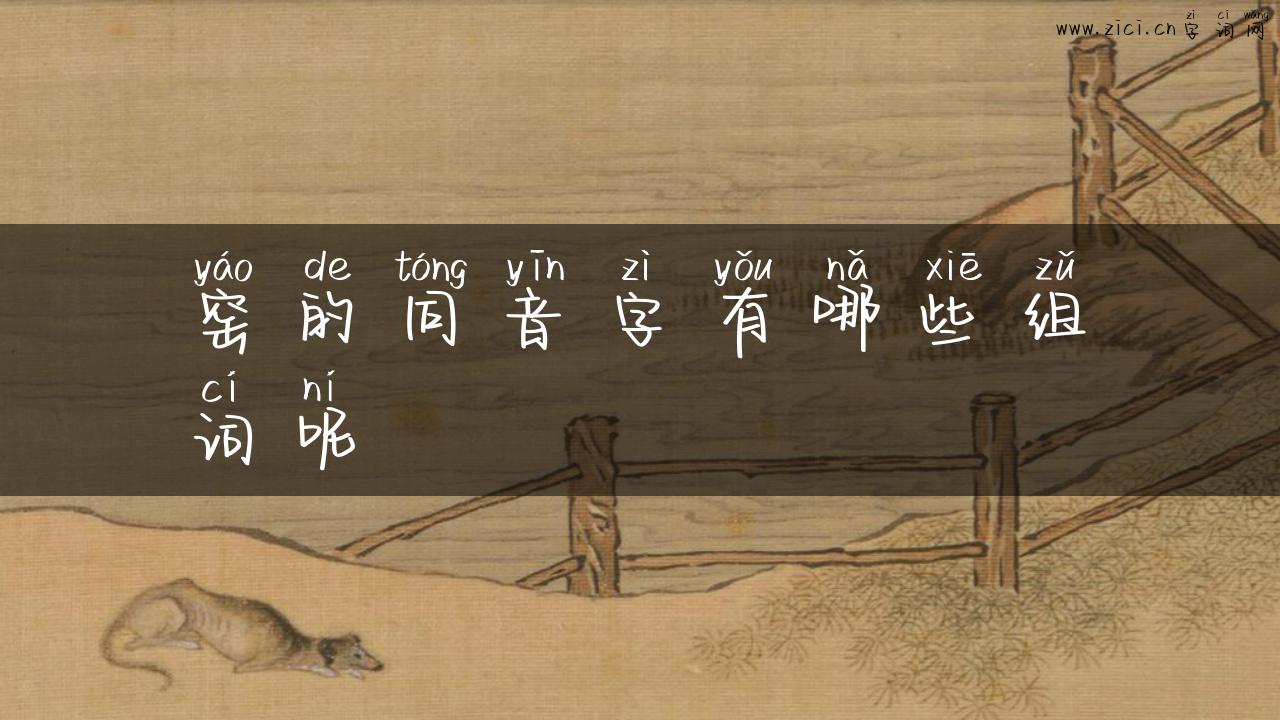 zi ci wang
www.zici.cn字词网
yáo de tóng yīn zì yǒu nǎ xiē zǔ
窑的同音字有哪些组
cí ní
词呢